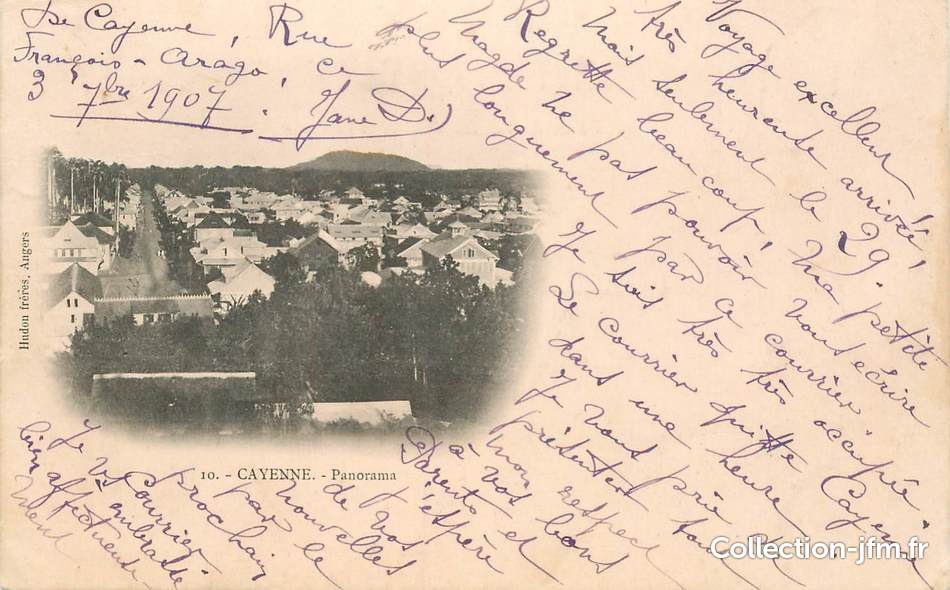 De Cayenne, Rue
François-Arago, ce
3 7bre 1907. Jane D.
Voyage excellent
très heureuse arrivée,
mais seulement le 29. Ma petite
Regrette beaucoup,
Magde ne pas pouvoir vous écrire
plus longuement par ce courrier
Je suis très très occupée
Le courrier quitte Cayenne
dans une heure
Je vous prie tous
présenter
mon respect
à vos bons
Parents et
j'espère
de vos
nouvelles
par le
prochain
courrier
Je vs embrasse
bien affectueuse
ment
Hudon frères, Angers
10. - CAYENNE. - Panorama
Collection-jfm.fr